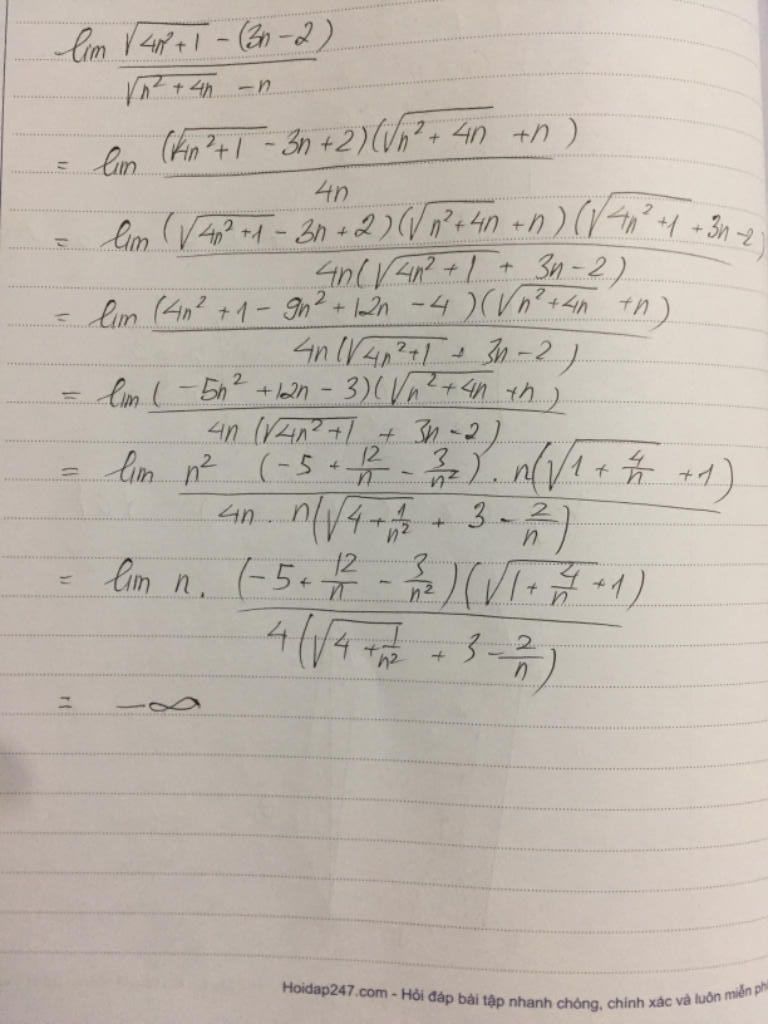 lim (√(4n²+1) - (3n-2)) / (√(n²+4n) - n)
= lim ((√(4n²+1) - 3n+2)(√(n²+4n) + n)) / (4n)
= lim ((√(4n²+1) - 3n+2)(√(n²+4n) + n)(√(4n²+1) + 3n-2)) / (4n(√(4n²+1) + 3n-2))
= lim ((4n²+1-9n²+12n-4)(√(n²+4n) + n)) / (4n(√(4n²+1) + 3n-2))
= lim ((-5n²+12n-3)(√(n²+4n) + n)) / (4n(√(4n²+1) + 3n-2))
= lim (n² (-5 + 12/n - 3/n²) . n(√(1 + 4/n) + 1)) / (4n . n(√(4 + 1/n²) + 3 - 2/n))
= lim n . ((-5 + 12/n - 3/n²)(√(1 + 4/n) + 1)) / (4(√(4 + 1/n²) + 3 - 2/n))
= -∞
Hoidap247.com - Hỏi đáp bài tập nhanh chóng, chính xác và luôn miễn phí